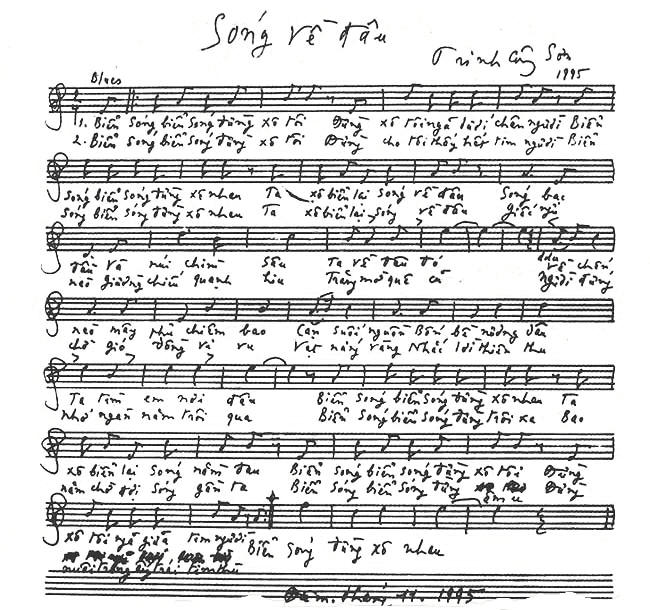 Sóng về đâu
Trịnh Công Sơn
1995
Blues
1. Biển sóng biển sóng đừng xô tôi Đừng xô tôi ngã dưới chân người Biển
2. Biển sóng biển sóng đừng xô tôi Đừng cho tôi thấy hết tim người Biển
sóng biển sóng đừng xô nhau Ta xô biển lại sóng về đâu Sóng bạc
sóng biển sóng đừng xô nhau Ta xô biển lại sóng về đâu giấc ngủ
đầu và núi chìm sâu Ta về đâu đó đâu Về chốn
nào giường chiếu quạnh hiu Trăng mơ quê cũ Người đứng
nào mây phủ chiêm bao Cạn suối nguồn Bốn bề nương dâu
chờ gió đồng vi vu Vạt nắng vàng Nhắc lời thiên thu
Ta tìm em nơi đâu Biển sóng biển sóng đừng xô nhau Ta
nhớ ngàn năm trôi qua Biển sóng biển sóng đừng trôi xa Bao
xô biển lại sóng nằm đau Biển sóng biển sóng đừng xô tôi Đừng
năm chờ đợi sóng gần ta Biển sóng biển sóng đừng âm u Đừng
xô tôi ngã giữa tim người Biển sóng đừng xô nhau
nuôi trong ấy trái tim thù
tháng 11. 1995